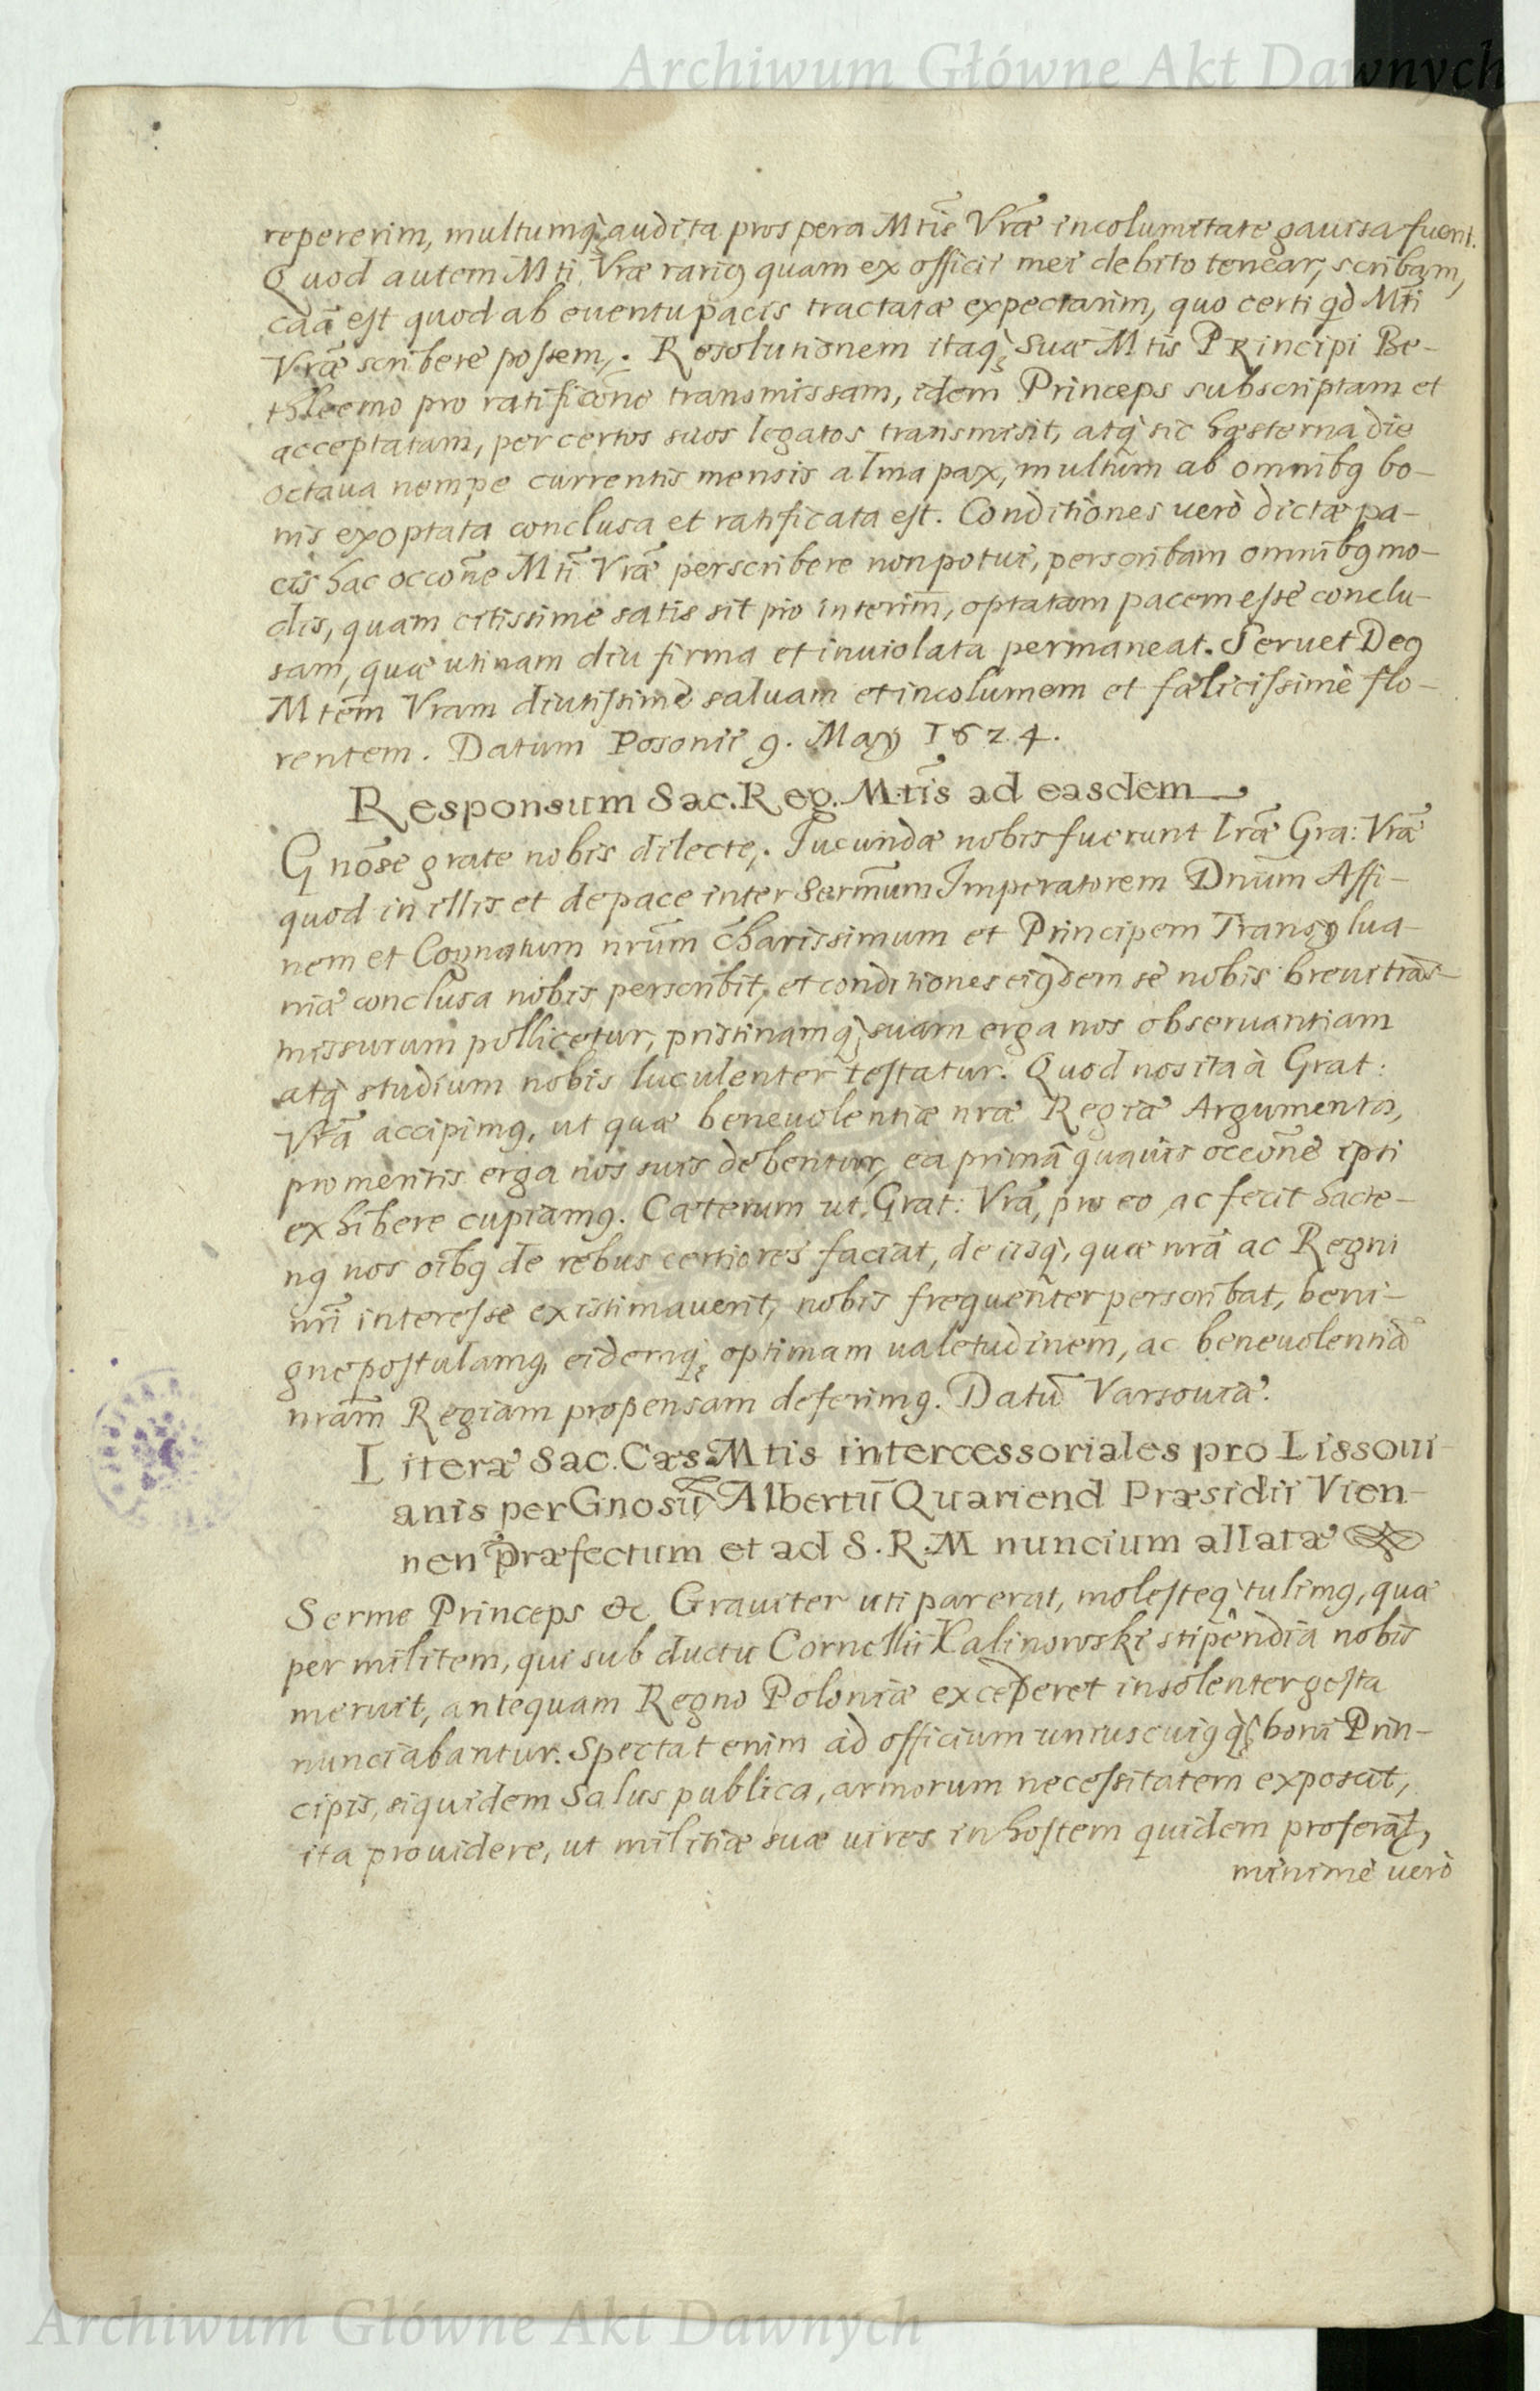 Archiwum Główne Akt Dawnych
repererim, multumq́; audita prospera Mtis̃ Vræ̃ incolumitate gauisa fuerit.
Quod autem Mti Vræ rariꝰ quam ex officii mei debito tenear, scribam,
caã est quod ab euentu pacis tractatæ expectarim, quo certi qd Mti
Vræ̃ scribere possem,. Resolutionem itaq́; suæ Mtis PRincipi Be-
thleemo pro ratificõne transmissam, idem Princeps subscriptam et
acceptatam, per certos suos legatos transmisit, atq́ sic hesterna die
octaua nempe currentis mensis alma pax, multũm ab omnibꝰ bo-
nis exoptata conclusa et ratificata est. Conditiones uerò dictæ pa-
cis hac occoñe Mti Vræ̃ perscribere non potui, perscribam omnibꝰ mo-
dis, quam citissime satis sit pro interim̃, optatam pacem esse conclu-
sam, quæ utinam diu firma et inuiolata permaneat. Seruet Deꝰ
Mtem̃ Vram diutissimè saluam et incolumem et fælicissimè flo-
rentem. Datum Posonii 9. Maÿ 1624.
Responsum Sac. Reg. Mtis̃ ad easdem
Gnõse grate nobis dilecte,. Iucundæ nobis fuerunt lræ̃ Gra: Vræ̃
quod in illis et de pace inter Serm̃um Imperatorem Dnũm Affi-
nem et Cognatum nrũm charissimum et Principem Transylua-
niæ conclusa nobis perscribit, et conditiones eiꝰdem se nobis breui trãs-
missurum pollicetur, pristinamq́; suam erga nos obseruantiam
atq́ studium nobis luculenter testatur. Quod nos ita à Grat:
Vrã accipimꝰ, ut quæ beneuolentiæ nræ Regiæ Argumenta,
pro meritis erga nos suis debentur, ea primã quauis occoñe ipsi
exhibere cupiamꝰ. Cæterum ut Grat: Vrã, pro eo ac fecit hacte-
nꝰ nos oĩbꝰ de rebus certiores faciat, de iisq́, quæ nrã ac Regni
nrĩ interesse existimauerit, nobis frequenter perscribat, beni-
gne postulamꝰ, eidemq́; optimam ualetudinem, ac beneuolentiã
nrãm Regiam propensam deferimꝰ. Datũ Varsouiæ.
Literæ Sac. Cæs. Mtis intercessoriales pro Lissoui-
anis per Gnosũ Albertũ Quariend Præsidii Vien-
nen præfectum et ad S. R. M nuncium allatæ
Serme Princeps &c Grauiter uti par erat, molesteq́ tulimꝰ, quæ
per militem, qui sub ductu Cornellii Kalinowski stipendia nobis
meruit, antequam Regno Poloniæ excederet insolenter gesta
nunciabantur. Spectat enim ad officium uniuscuiꝰq́; boni Prin-
cipis, siquidem Salus publica, armorum necessitatem exposcit,
ita prouidere, ut militiæ suæ uires in hostem quidem proferat,
minimè uerò
Archiwum Główne Akt Dawnych